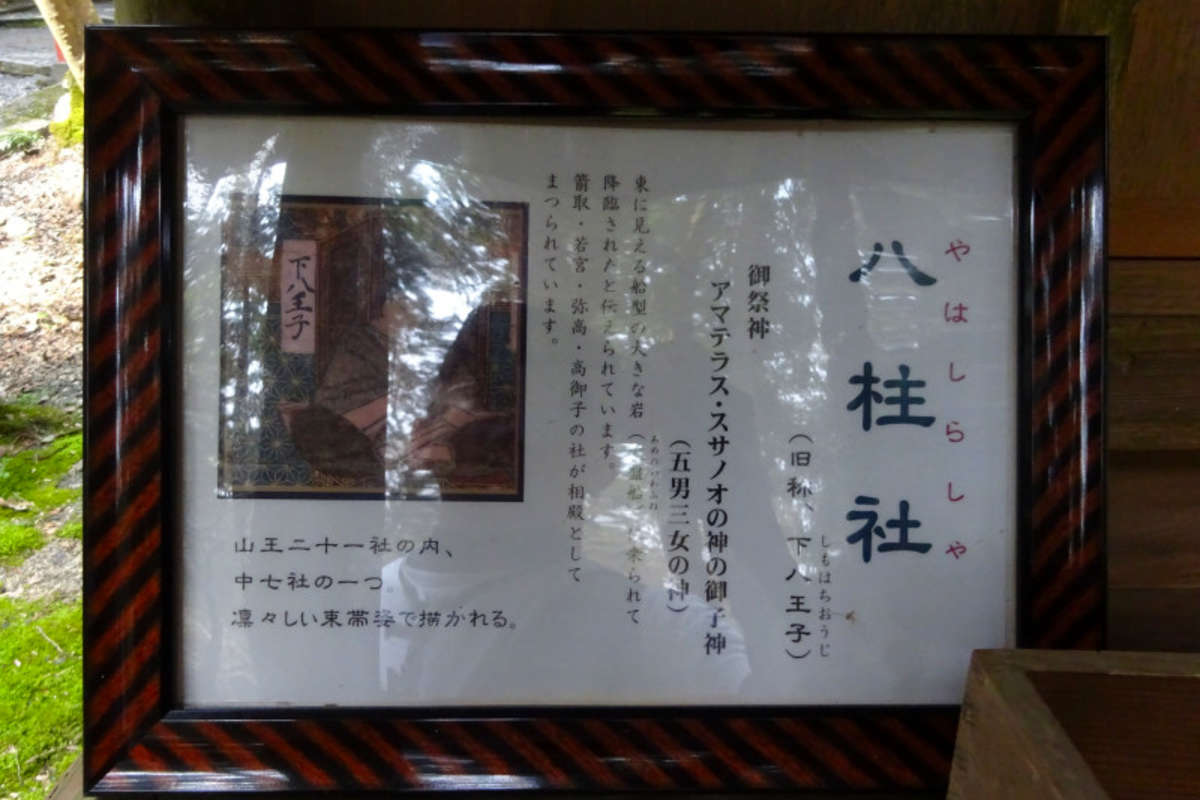 やはしらしゃ
八柱社
しもはちおうじ
(旧称、下八王子)
御祭神
アマテラス・スサノオの神の御子神
(五男三女の神)
東に見える船型の大きな岩(
降臨されたと伝えられています。
箭取・若宮・弥高・高御子の社が相殿として
まつられています。
下八王子
山王二十一社の内、
中七社の一つ。
凛々しい束帯姿で描かれる。